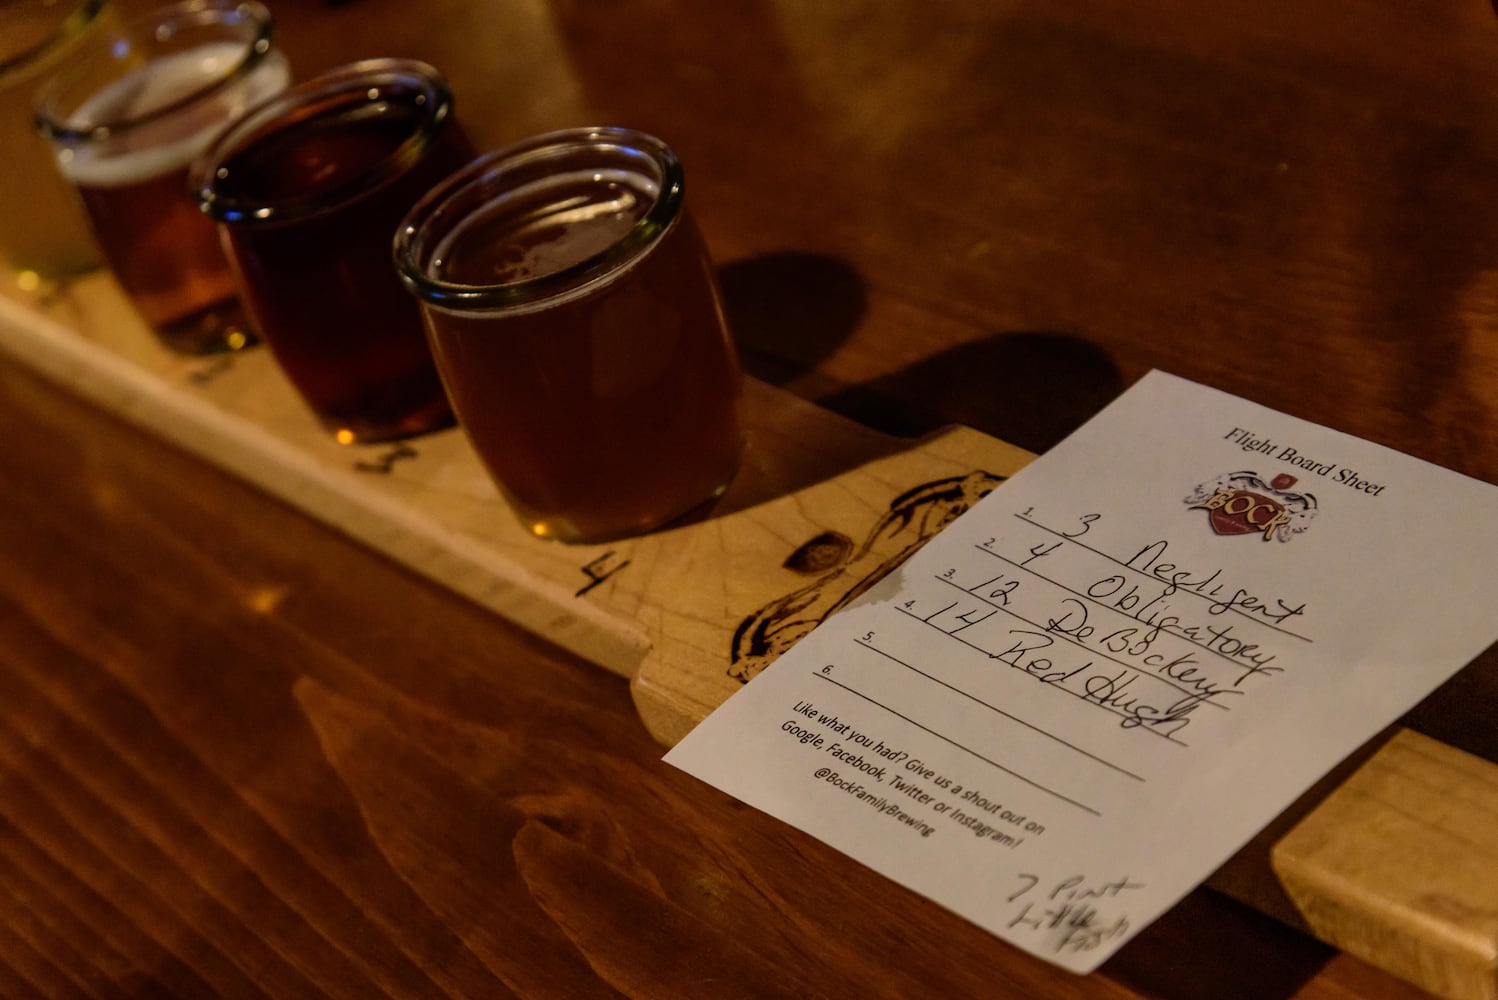 Flight Board Sheet
BOCK
1. 3 Negligent
2. 4 Obligatory
3. 12 DeBockery
4. 14 Red Hugh
5.
6.
Like what you had? Give us a shout out on
Google, Facebook, Twitter or Instagram!
@BockFamilyBrewing
7 Pint
Little
Fish
3
4